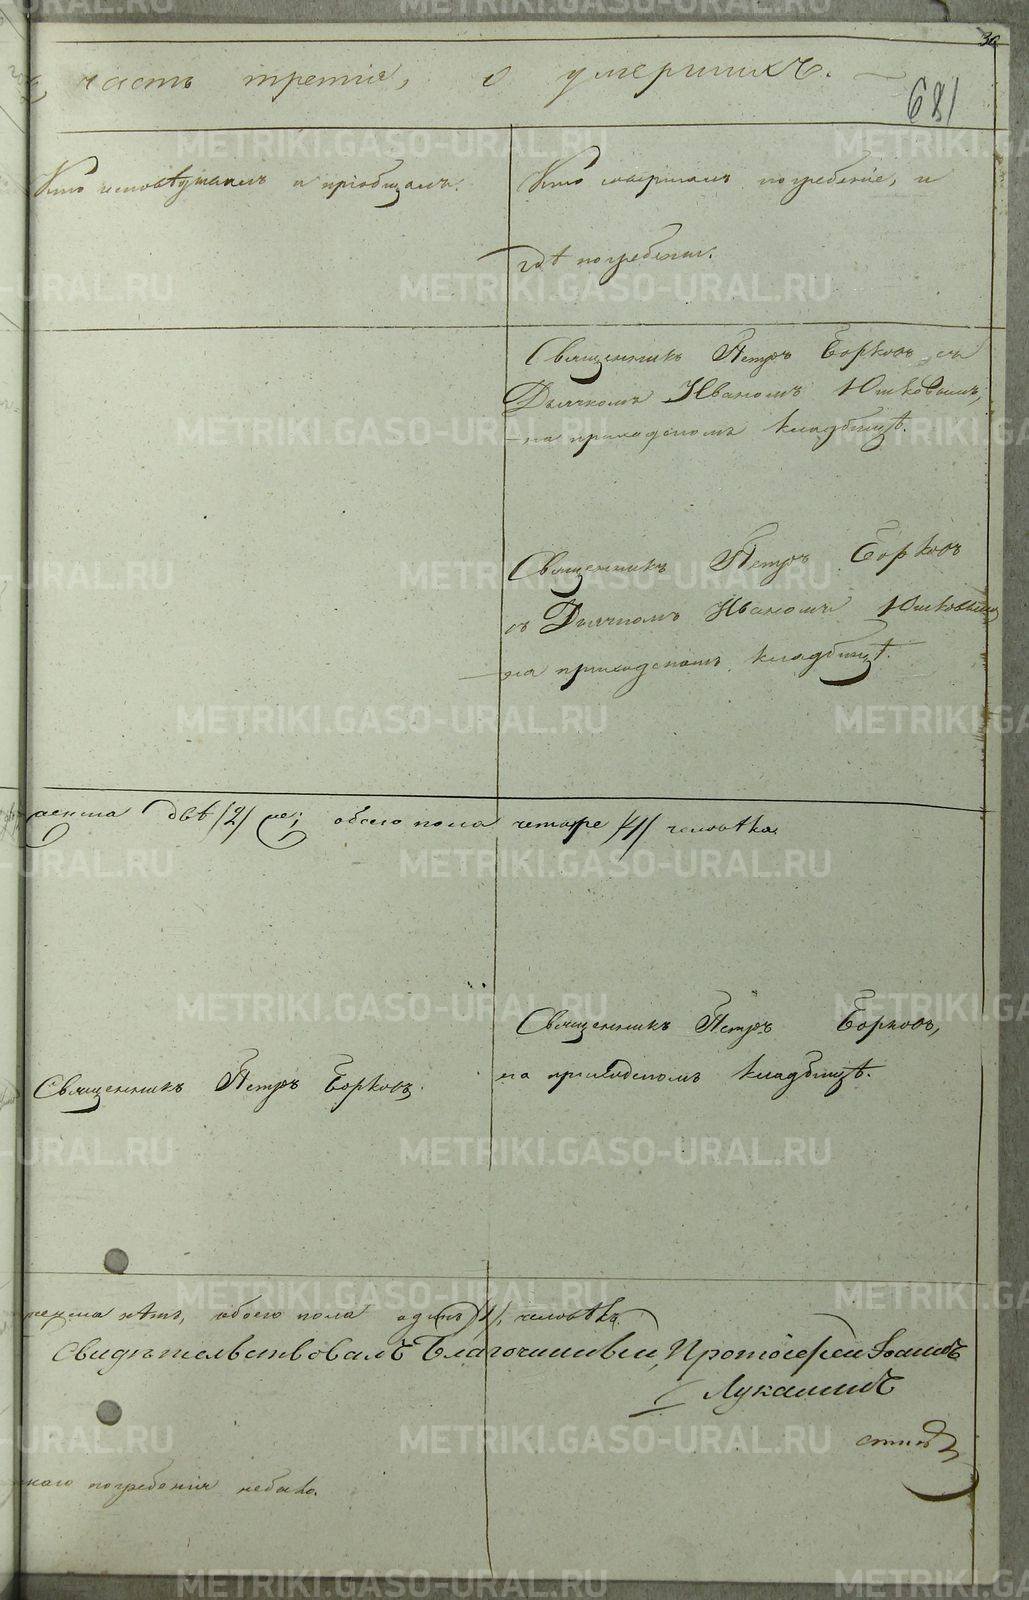 30
часть третія, о умершихъ.
681
Кто исповѣдывалъ и пріобщалъ.
Кто совершалъ погребеніе, и
гдѣ погребены.
Священникъ Петръ Борковъ съ
Дьячкомъ Иваномъ Юшковымъ,
на приходскомъ кладбищѣ.
Священникъ Петръ Борковъ
съ Дьячкомъ Иваномъ Юшковымъ
на приходскомъ кладбищѣ.
женска двѣ /2/ обоего пола четыре /4/ человѣка.
Священникъ Петръ Борковъ,
на приходскомъ кладбищѣ.
Священникъ Петръ Борковъ.
женска нѣтъ, обоего пола одинъ /1/, человѣкъ
Свидѣтельствовалъ Благочинный, Протоіерей Іоаннъ
Лукании́нъ
наго погребенія небыло.
METRIKI.GASO-URAL.RU